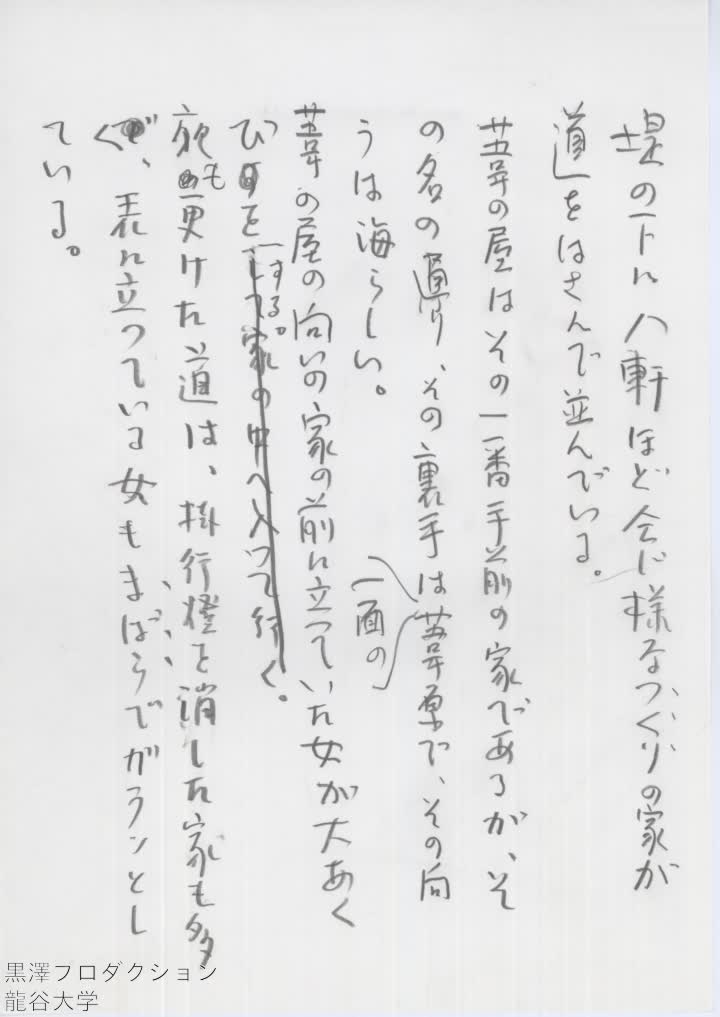 堤の下に八軒ほど会じ様なつくりの家が
道をはさんで並んでいる。
葦の屋はその一番手前の家であるが、そ
の名の通り、その裏手は一面の葦原で、その向
うは海らしい。
葦の屋の向いの家の前に立っていた女が大あく
びをする。して家の中へ入って行く。
夜も更けた道は、掛行燈を消した家も多
く、表に立っている女もまばらでガランとし
ている。
黒澤プロダクション
龍谷大学